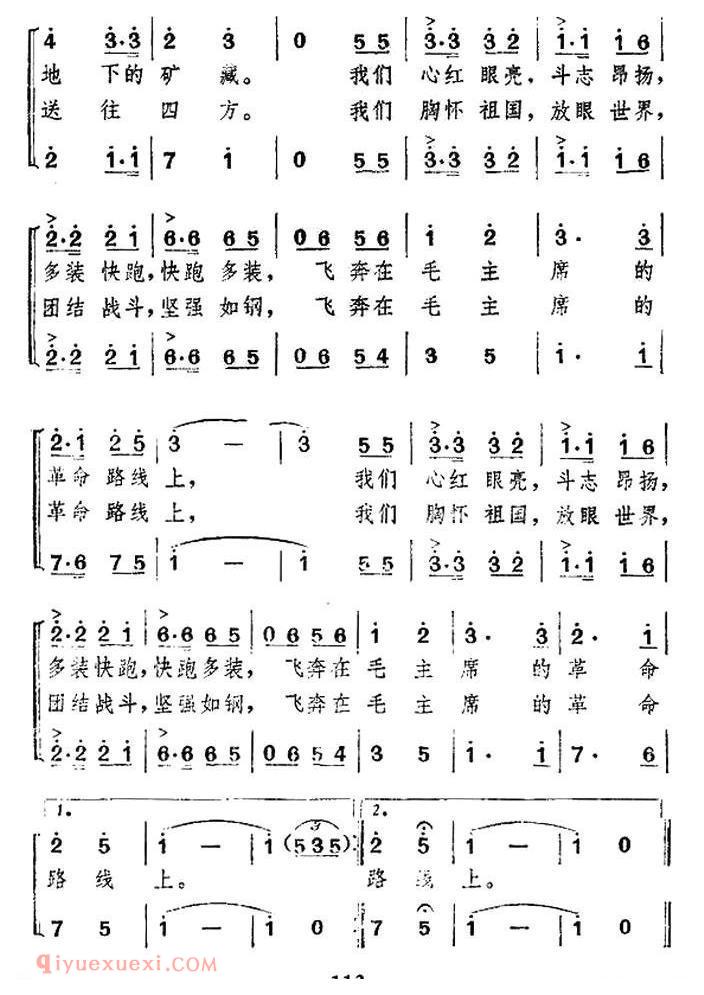 4 3·3 | 2 3 | 0 5 5 | 3·3 3 2 | 1·1 1 6 |
地 下的 矿 藏。 我们 心红 眼亮, 斗志 昂扬,
送 往 四 方。 我们 胸怀 祖国, 放眼 世界,
2 1·1 | 7 1 | 0 5 5 | 3·3 3 2 | 1·1 1 6 |
2·2 2 1 | 6·6 6 5 | 0 6 5 6 | 1 2 | 3· 3 |
多装 快跑, 快跑 多装, 飞奔在 毛 主 席 的
团结 战斗, 坚强 如钢, 飞奔在 毛 主 席 的
2·2 2 1 | 6·6 6 5 | 0 6 5 4 | 3 5 | 1· 1 |
2·1 2 5 | 3 — | 3 5 5 | 3·3 3 2 | 1·1 1 6 |
革命 路线 上, 我们 心红 眼亮, 斗志 昂扬,
革命 路线 上, 我们 胸怀 祖国, 放眼 世界,
7·6 7 5 | 1 — | 1 5 5 | 3·3 3 2 | 1·1 1 6 |
2·2 2 1 | 6·6 6 5 | 0 6 5 6 | 1 2 | 3· 3 | 2· 1 |
多装快跑, 快跑多装, 飞奔在 毛 主 席 的 革 命
团结战斗, 坚强如钢, 飞奔在 毛 主 席 的 革 命
2·2 2 1 | 6·6 6 5 | 0 6 5 4 | 3 5 | 1· 1 | 7· 6 |
1. 2.
2 5 | 1 — | 1 (5 3 5) 3 :| 2 5 | 1 — | 1 0 ||
路 线 上。 路 线 上。
7 5 | 1 — | 1 0 :| 7 5 | 1 — | 1 0 ||
qiyuexuexi.com